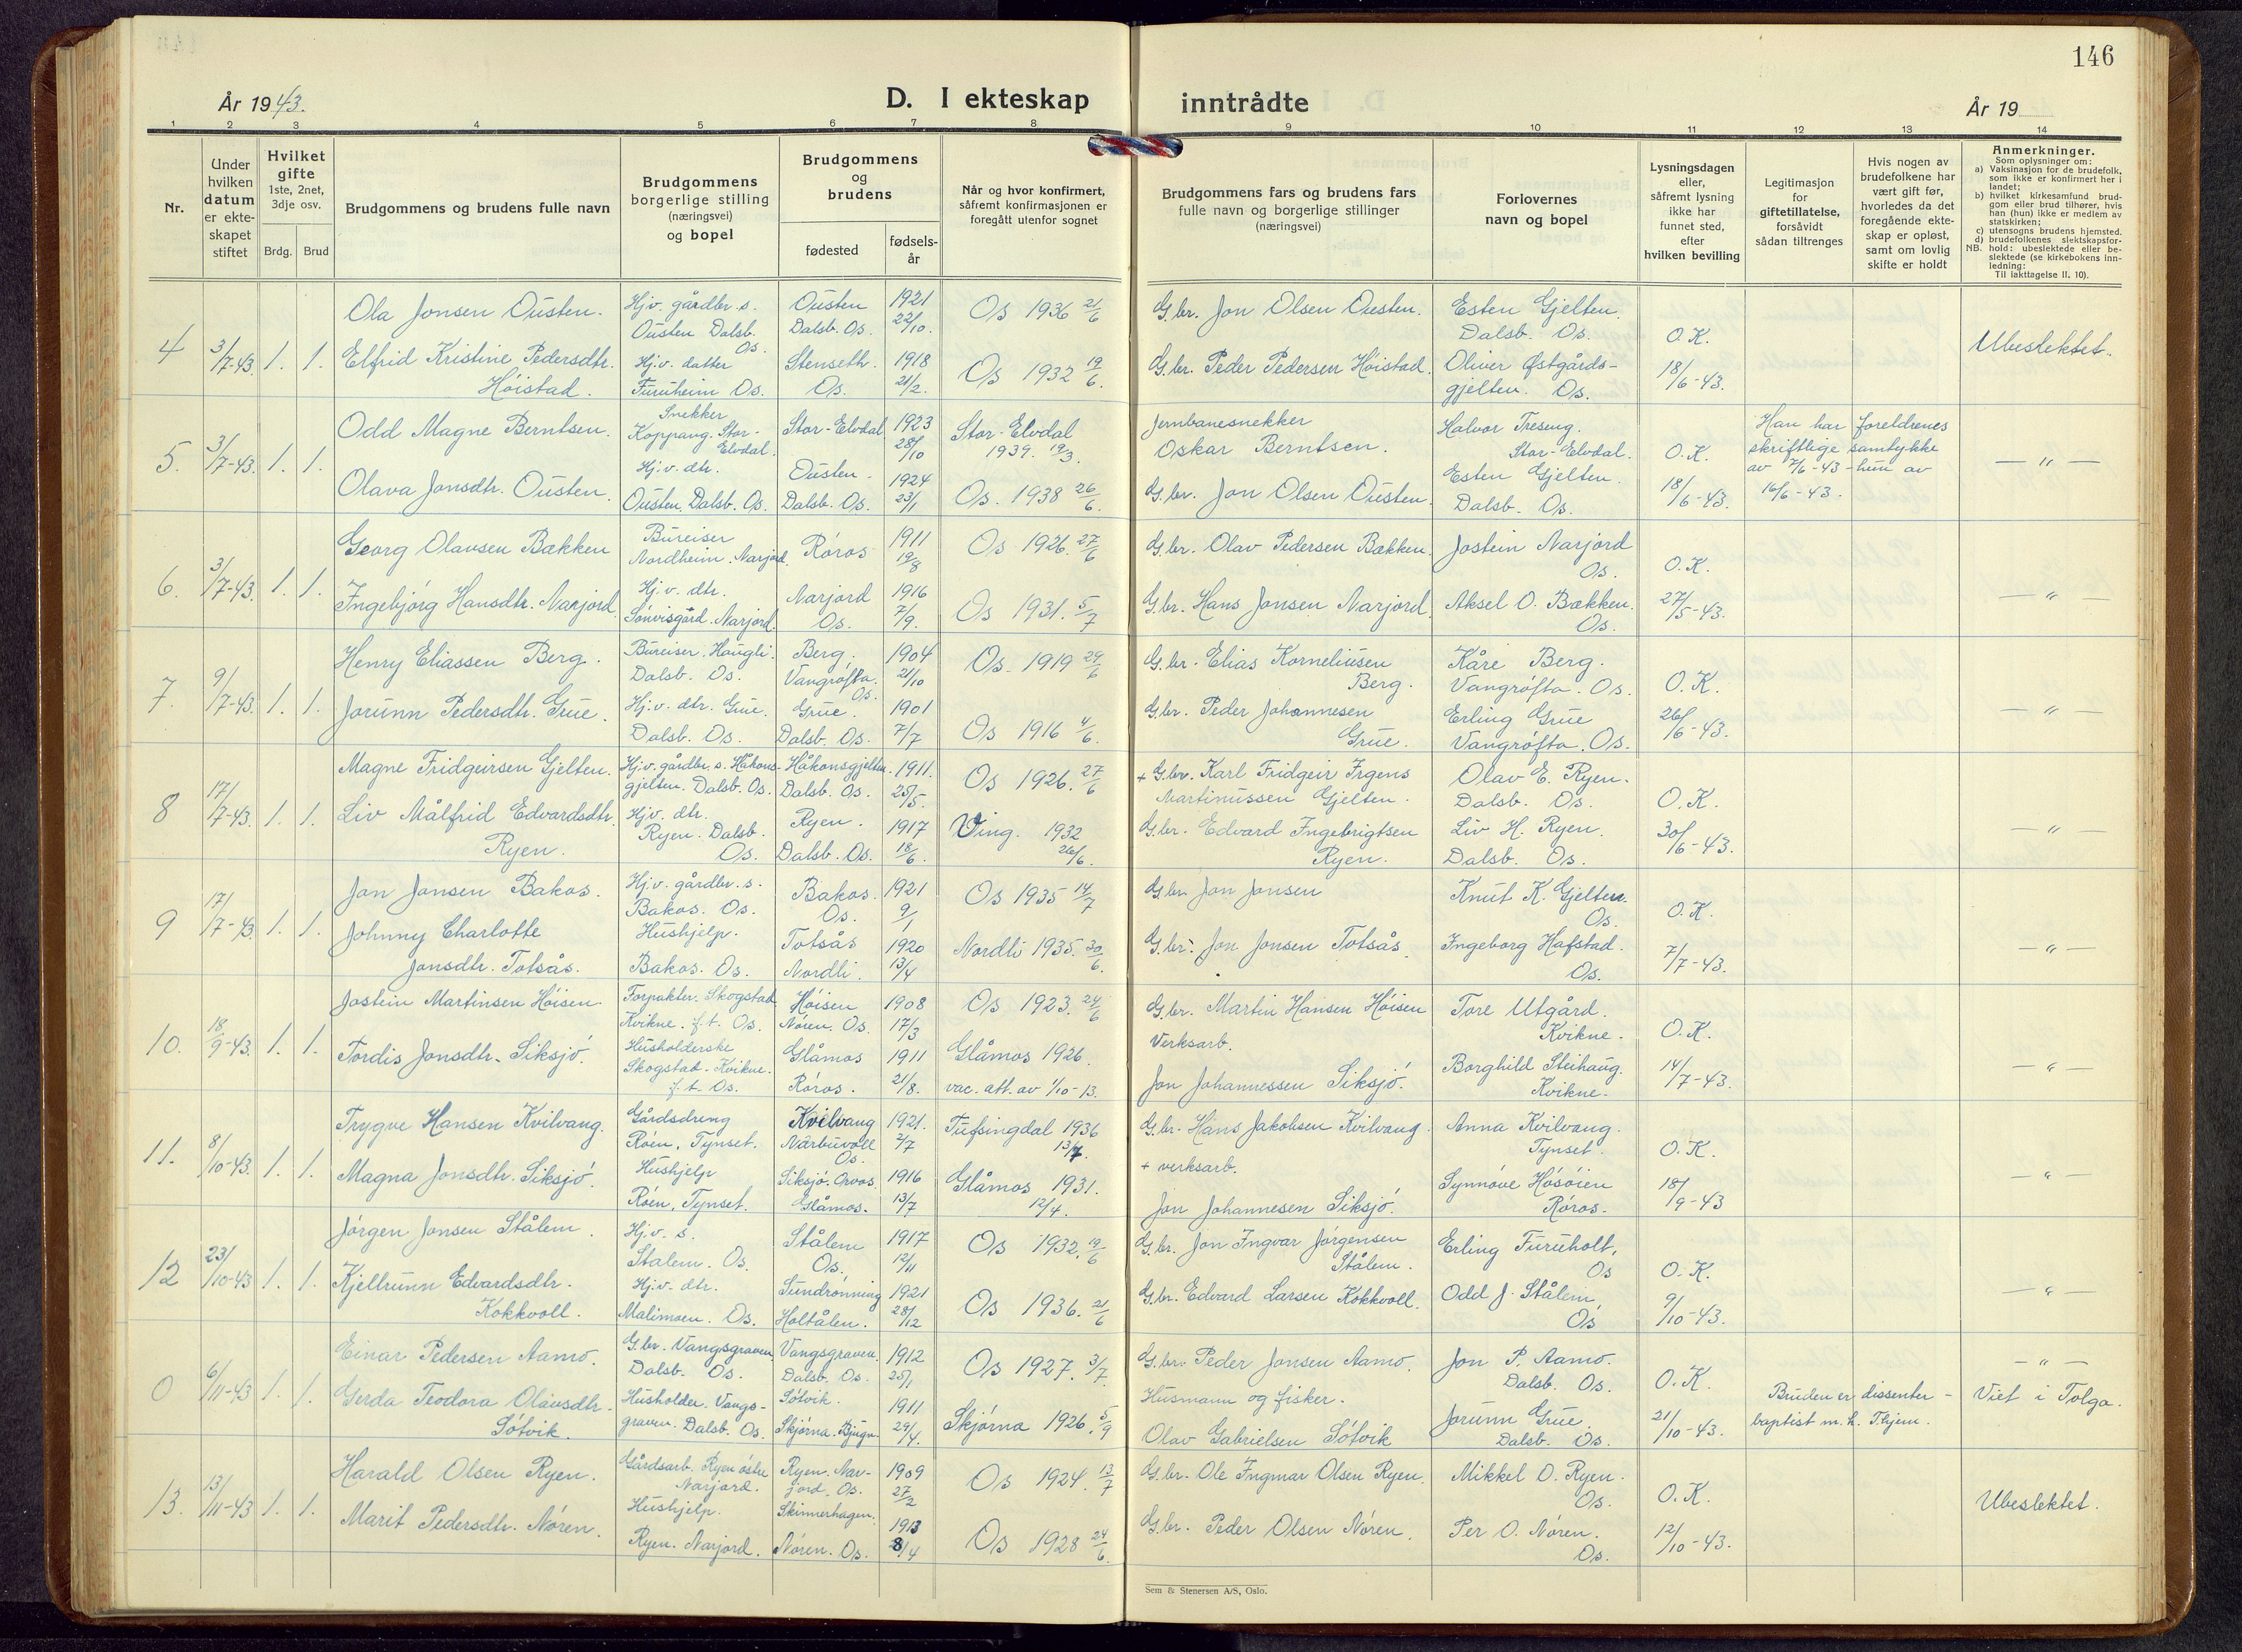 146
År 1943.
D. I ekteskap inntrådte
År 19
1 2 3 4 5 6 7 8 9 10 11 12 13 14
Nr.
Under
hvilken
datum
er ekte-
skapet
stiftet
Hvilket
gifte
1ste, 2net,
3dje osv.
Brdg. Brud
Brudgommens og brudens fulle navn
Brudgommens
borgerlige stilling
(næringsvei)
og bopel
Brudgommens
og
brudens
fødested
fødsels-
år
Når og hvor konfirmert,
såfremt konfirmasjonen er
foregått utenfor sognet
Brudgommens fars og brudens fars
fulle navn og borgerlige stillinger
(næringsvei)
Forlovernes
navn og bopel
Lysningsdagen
eller,
såfremt lysning
ikke har
funnet sted,
efter
hvilken bevilling
Legitimasjon
for
giftetillatelse,
forsåvidt
sådan tiltrenges
Hvis nogen av
brudefolkene har
vært gift før,
hvorledes da det
foregående ekte-
skap er opløst,
samt om lovlig
skifte er holdt
Anmerkninger.
Som oplysninger om:
a) Vaksinasjon for de brudefolk,
som ikke er konfirmert her i
landet;
b) hvilket kirkesamfund brud-
gom eller brud tilhører, hvis
han (hun) ikke er medlem av
statskirken;
c) utensogns brudens hjemsted.
d) brudefolkenes slektskapsfor-
NB. hold: ubeslektede eller be-
slektede (se kirkebokens inn-
ledning:
Til iakttagelse II. 10).
4 3/7-43 1. 1.
Ola Jonsen Ousten.
Elfrid Kristine Pedersdtr.
Höistad.
Hj.v. gårdbr. s.
Ousten Dalsb.
Os.
Hj.v. datter
Furuheim Os.
Ousten
Dalsb. Os.
Stenseth.
Os.
1921
22/10.
1918
21/2.
Os 1936 21/6
Os 1932 19/6.
G.br. Jon Olsen Ousten.
G.br. Peder Pedersen Höistad.
Esten Gjelten.
Dalsb. Os.
Oliver Östgårds-
gjelten. Os.
O.K.
18/6-43.
Ubeslektet.
5. 3/7-43. 1. 1.
Odd Magne Berntsen.
Olava Jonsdtr. Ousten.
Snekker
Koppang. Stor-
Elvdal.
Hj.v. dtr.
Ousten. Dalsb. Os.
Stor-Elvdal
Ousten.
Dalsb. Os.
1923
28/10
1924
23/1
Stor-Elvdal
1939. 19/3.
Os. 1938 26/6.
Jernbanesnekker
Oskar Berntsen.
G.br. Jon Olsen Ousten.
Halvor Treseng.
Stor-Elvdal.
Esten Gjelten.
Dalsb. Os.
O.K.
18/6-43.
Han har foreldrenes
skriftlige samtykke
av 7/6-43 - hun av
16/6-43.
— " —
6. 3/7-43. 1. 1.
Georg Olavsen Bækken
Ingebjörg Hansdtr. Narjord.
Bureiser
Nordheim. Narjord.
Hj.v. dtr.
Sönvisgård. Narjord.
Röros
Narjord
Os.
1911
19/8
1916
7/9.
Os 1926. 27/6
Os 1931. 5/7
G.br. Olav Pedersen Bækken.
G.br. Hans Jonsen Narjord
Jostein Narjord
Os.
Aksel O. Bækken.
Os.
O.K.
27/5-43.
— " —
7. 9/7-43. 1. 1.
Henry Eliassen Berg.
Jorunn Pedersdtr. Grue.
Bureiser. Haugli.
Dalsb. Os.
Hj.v. dtr. Grue.
Dalsb. Os.
Berg.
Vangröfta.
Os.
Grue.
Dalsb. Os.
1904
21/10
1901
7/7
Os. 1919 29/6
Os 1916 4/6.
G.br. Elias Korneliusen
Berg.
G.br. Peder Johannesen
Grue.
Kåre Berg.
Vangröfta. Os.
Erling Grue
Vangröfta. Os.
O.K.
26/6-43.
— " —
8 17/7-43. 1. 1.
Magne Fridgeirsen Gjelten.
Liv Målfrid Edvardsdtr.
Ryen.
Hj.v. gårdbr. s. Håkons-
gjelten. Dalsb. Os.
Hj.v. dtr.
Ryen. Dalsb.
Os.
Håkonsgjelten.
Dalsb. Os.
Ryen.
Dalsb. Os.
1911.
25/5.
1917
18/6.
Os 1926. 27/6
Ving. 1932
26/6.
+ G.br. Karl Fridgeir Irgens
Martinussen Gjelten.
G.br. Edvard Ingebrigtsen
Ryen.
Olav E. Ryen.
Dalsb. Os.
Liv H. Ryen.
Dalsb. Os.
O.K.
30/6-43.
— " —
9 17/7-43 1. 1.
Jon Jonsen Bakos.
Johnny Charlotte
Jonsdtr. Totsås.
Hj.v. gårdbr. s.
Bakos. Os.
Hushjelp.
Bakos. Os.
Bakos.
Os.
Totsås
Nordli.
1921
9/1
1920
13/4
Os 1935 14/7
Nordli 1935. 30/6.
G.br. Jon Jonsen
G.br. Jon Jonsen Totsås.
Knut K. Gjelten.
Os.
Ingeborg Hafstad.
Os.
O.K.
7/7-43.
— " —
10. 18/9-43. 1. 1.
Jostein Martinsen Höisen
Tordis Jonsdtr. Siksjö.
Forpakter. Skogstad
Kvikne. f.t. Os.
Husholderske
Skogstad - Kvikne.
f.t. Os.
Höisen
Nören. Os.
Glåmos
Röros.
1908
17/3
1911
21/8.
Os 1923. 24/6
Glåmos 1926.
vac. att. av 1/10-13.
G.br. Martin Hansen Höisen
Verksarb.
Jon Johannessen Siksjö.
Tore Utgård.
Kvikne.
Borghild Steihaug.
Kvikne.
O.K.
14/7-43.
— " —
11. 8/10-43. 1. 1.
Trygve Hansen Kvilvang.
Magna Jonsdtr. Siksjö.
Gårdsdreng
Röen, Tynset.
Hushjelp
Röen, Tynset.
Kvilvang
Narbuvoll
Os.
Siksjö. Orvos.
Glåmos.
1921.
2/7
1916
13/7
Tufsingdal 1936
13/7.
Glåmos 1931.
12/4.
G.br. Hans Jakobsen Kvilvang.
+ verksarb.
Jon Johannesen Siksjö.
Anna Kvilvang.
Tynset.
Synnöve Hösöien
Röros.
O.K.
18/9-43
— " —
12 23/10-43 1. 1.
Jörgen Jonsen Stålem.
Kjellrunn Edvardsdtr.
Kokkvoll.
Hj.v. s.
Stalem. Os.
Hj.v. dtr.
Malimoen. Os.
Stålem
Os.
Sundrönning
Holtålen.
1917
12/11
1921
28/12
Os 1932. 19/6
Os 1936. 21/6
G.br. Jon Ingvar Jörgensen
Stålem.
G.br. Edvard Larsen Kokkvoll.
Erling Furuholt,
Os
Odd J. Stålem,
Os
O.K.
9/10-43.
— " —
0 6/11-43 1. 1.
Einar Pedersen Aamo.
Gerda Teodora Olavsdtr.
Sötvik.
G.br. Vangsgraven.
Dalsb. Os.
Husholder. Vangs-
graven. Dalsb. Os.
Vangsgraven.
Dalsb. Os.
Sötvik.
Skjörna. Bjugn.
1912
25/1
1911
29/4.
Os 1927. 3/7.
Skjörna 1926. 5/9
G.br. Peder Jonsen Aamo.
Husmann og fisker.
Olav Gabrielsen Sötvik
Jon P. Aamo.
Dalsb. Os.
Jorunn Grue.
Dalsb. Os.
O.K.
21/10-43.
Bruden er dissenter -
baptist m.h. T.hjem.
— " —
Viet i Tolga.
13. 13/11-43 1. 1.
Harald Olsen Ryen.
Marit Pedersdtr. Nören.
Gårdsarb. Ryen östre
Narjord.
Hushjelp.
Ryen. Narjord.
Ryen. Nar-
jord. Os.
Skinnerhagen.
Nören. Os.
1909
27/2
1913
8/4
Os 1924. 13/7
Os 1928 24/6.
G.br. Ole Ingmar Olsen Ryen.
G.br. Peder Olsen Nören.
Mikkel O. Ryen.
Os.
Per O. Nören.
Os.
O.K.
12/10-43.
Ubeslektet.
Sem & Stenersen A/S, Oslo.